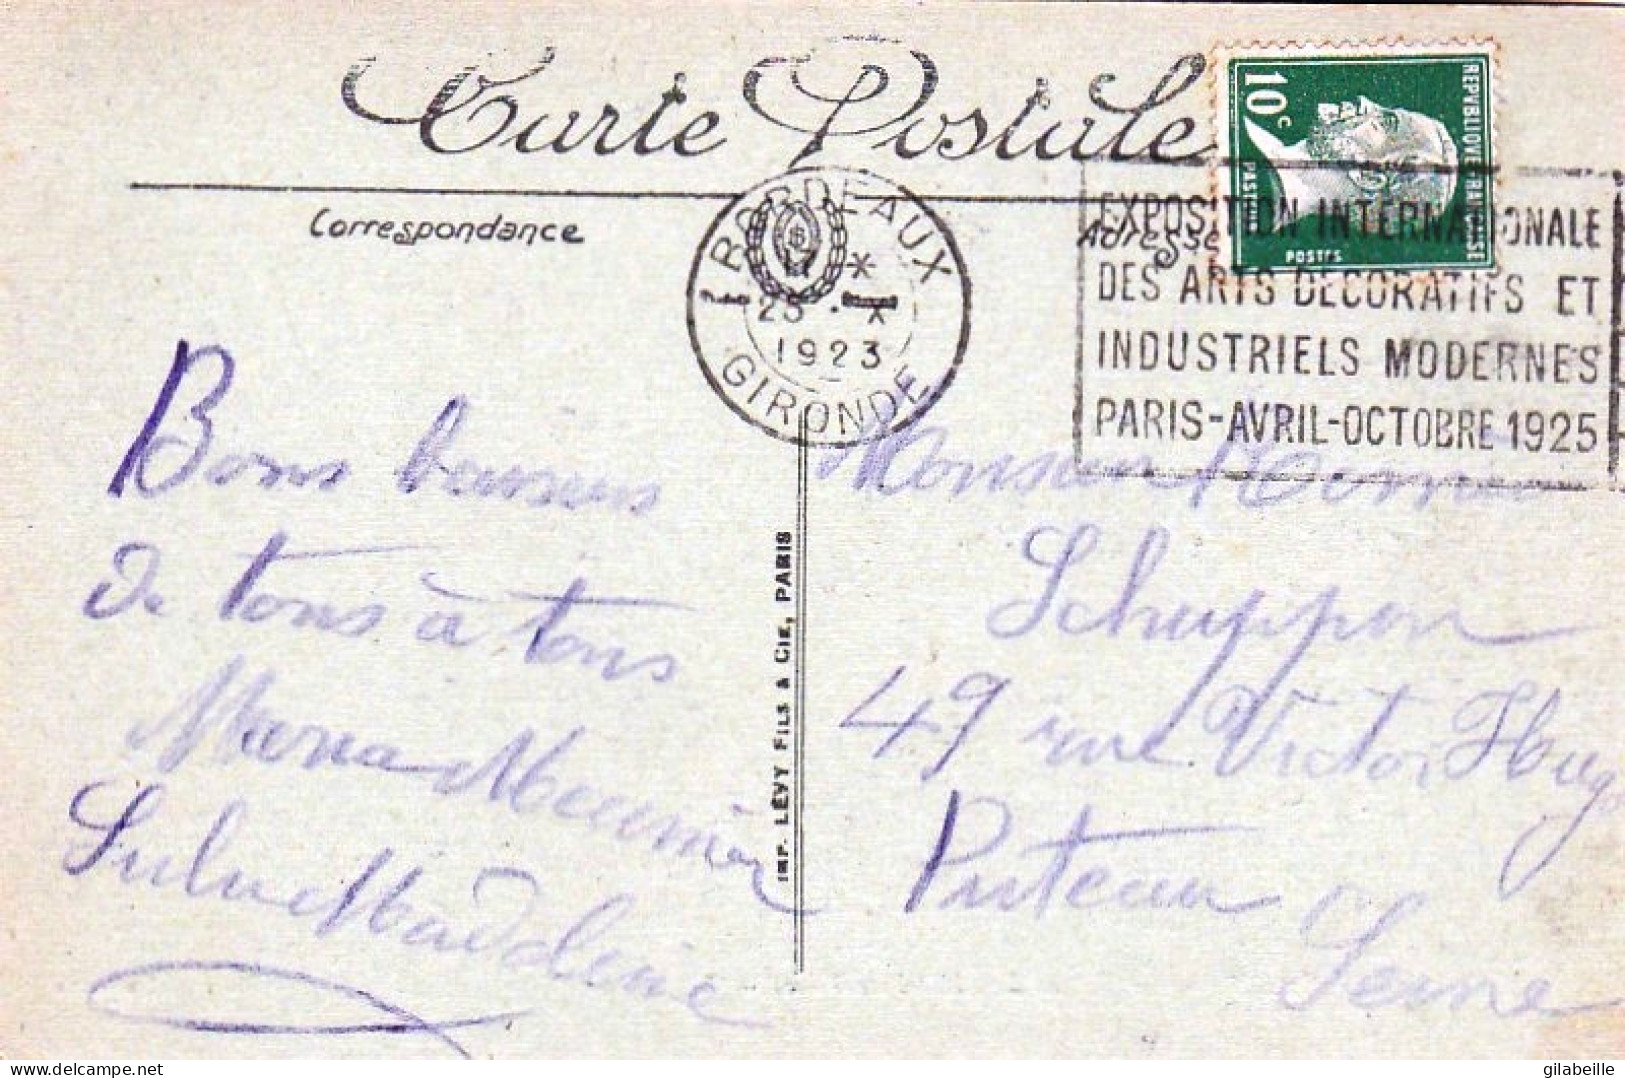 Carte Postale
Correspondance
Adresse
10c
REPVBLIQVE FRANCAISE
PASTEUR
POSTES
BORDEAUX
17 *
23 - X
1923
GIRONDE
EXPOSITION INTERNATIONALE
DES ARTS DECORATIFS ET
INDUSTRIELS MODERNES
PARIS-AVRIL-OCTOBRE 1925
Bons baisers
de tous à tous
Maria Meunier
Madeleine
IMP. LÉVY FILS & CIE, PARIS
Monsieur
Schuppon
49 rue Victor Hugo
Puteaux
Seine
delcampe.net
gilabeille